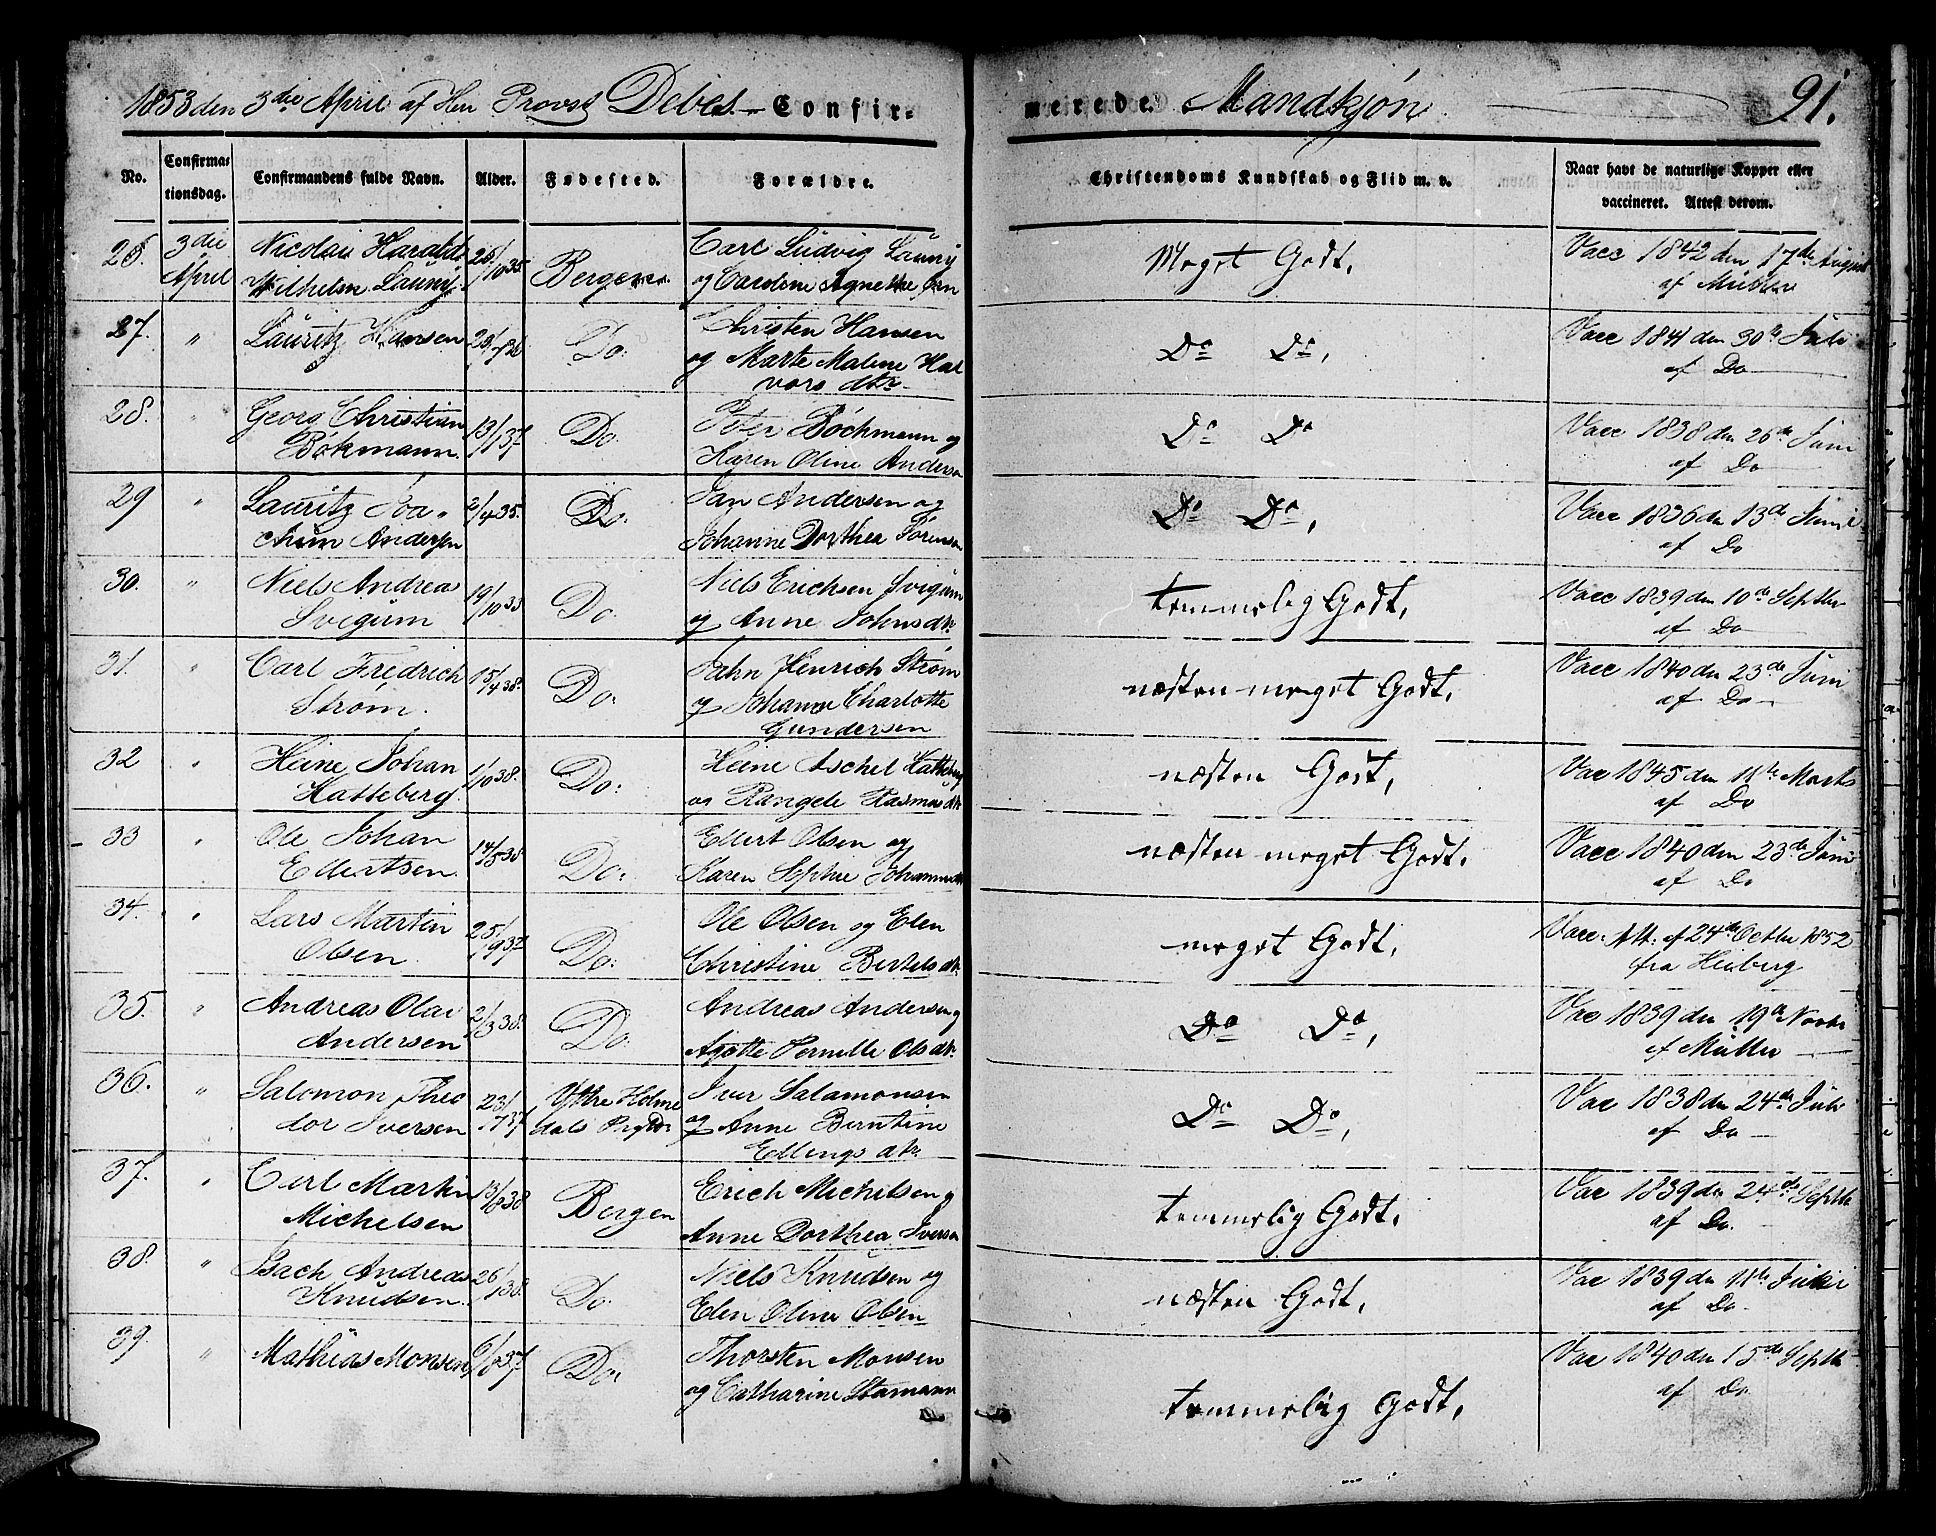 1853 den 3die April af Hrr Provst Debes Confir-
merede Mandkjøn 91.
No. Confirma- tionsdag. Confirmandens fulde Navn. Alder. Fødested. Forældre. Christendoms Kundskab og Flid m. v. Naar havt de naturlige Kopper eller
vaccineret. Attest derom.
26. 3die Nicolai Harald Carl Ludvig Laury Meget Godt. Vacc 1842 den 17de August
April Wilhelm Laury Bergen og Caroline Agnethe af Müller
27. " Lauritz Hansen Do. Christen Hansen Do Do, Vacc 1841 den 30te Juli
og Marte Malene Hal af Do
vors dtr.
28. " Georg Christian 13/1 37 Do. Peter Bøchmann og Do Do Vacc 1838 den 26de Juni
Bøkmann. Karen Oline Anderse af Do
29 " Lauritz Joa- 2/4 35. Do. Jan Andersen og Do Do, Vacc 1836 den 13de Juni
chim Andersen Johanne Dorthea Sørensen af Do
30. " Niels Andreas 19/10 33 Do. Niels Erichsen Svigum temmelig Godt, Vacc 1839 den 10de Septbr
Svegum og Anne Johnsdtr. af Do
31. " Carl Fredrich 15/4 38. Do. Jahn Henrich Strøm næsten meget Godt, Vacc 1840 den 23de Juni
Strøm. og Johanne Charlotte af Do
Gundersen
32 " Heine Johan 1/10 38. Do. Heine Aschel Hatteberg næsten Godt, Vac 1845 den 11te Marts
Hatteberg. og Rangele Rasmusdtr af Do
33 " Ole Johan 14/5 38 Do. Ellert Olsen og næsten meget Godt. Vacc 1840 den 23de Juni
Ellertsen. Karen Sophie Johannesdtr af Do
34. " Lars Martin 25/9 37 Do. Ole Olsen og Elen meget Godt, Vacc. Att. af 24de Octbr 1852
Olsen. Christine Bertelsdtr. fra Heiberg
35. " Andreas Olai 2/3 38. Do. Andreas Andersen og Do Do, Vac 1839 den 19de Novbr
Andersen Agotte Pernille Olsdtr. af Müller
36. " Salomon Theo 23/1 37 Yttre Holme Iver Salamonsen Do Do, Vac 1838 den 24de Juli
dor Iversen dals Prgd. og Anne Berntine af Do
Ellingsdtr.
37. " Carl Martin 13/8 38 Bergen Erich Michelsen og temmelig Godt, Vac 1839 den 24de Septbr
Michelsen Anne Dorthea Iversen af Do.
38. " Isach Andreas 26/1 38. Do. Niels Knudsen og næsten Godt, Vac 1839 den 11te Juli
Knudsen. Elen Oline Olsen af Do.
39. " Mathias Monsen 6/8 37 Do. Thorsten Monsen temmelig Godt, Vac 1840 den 15de Septbr
og Catharine Stamann af Do